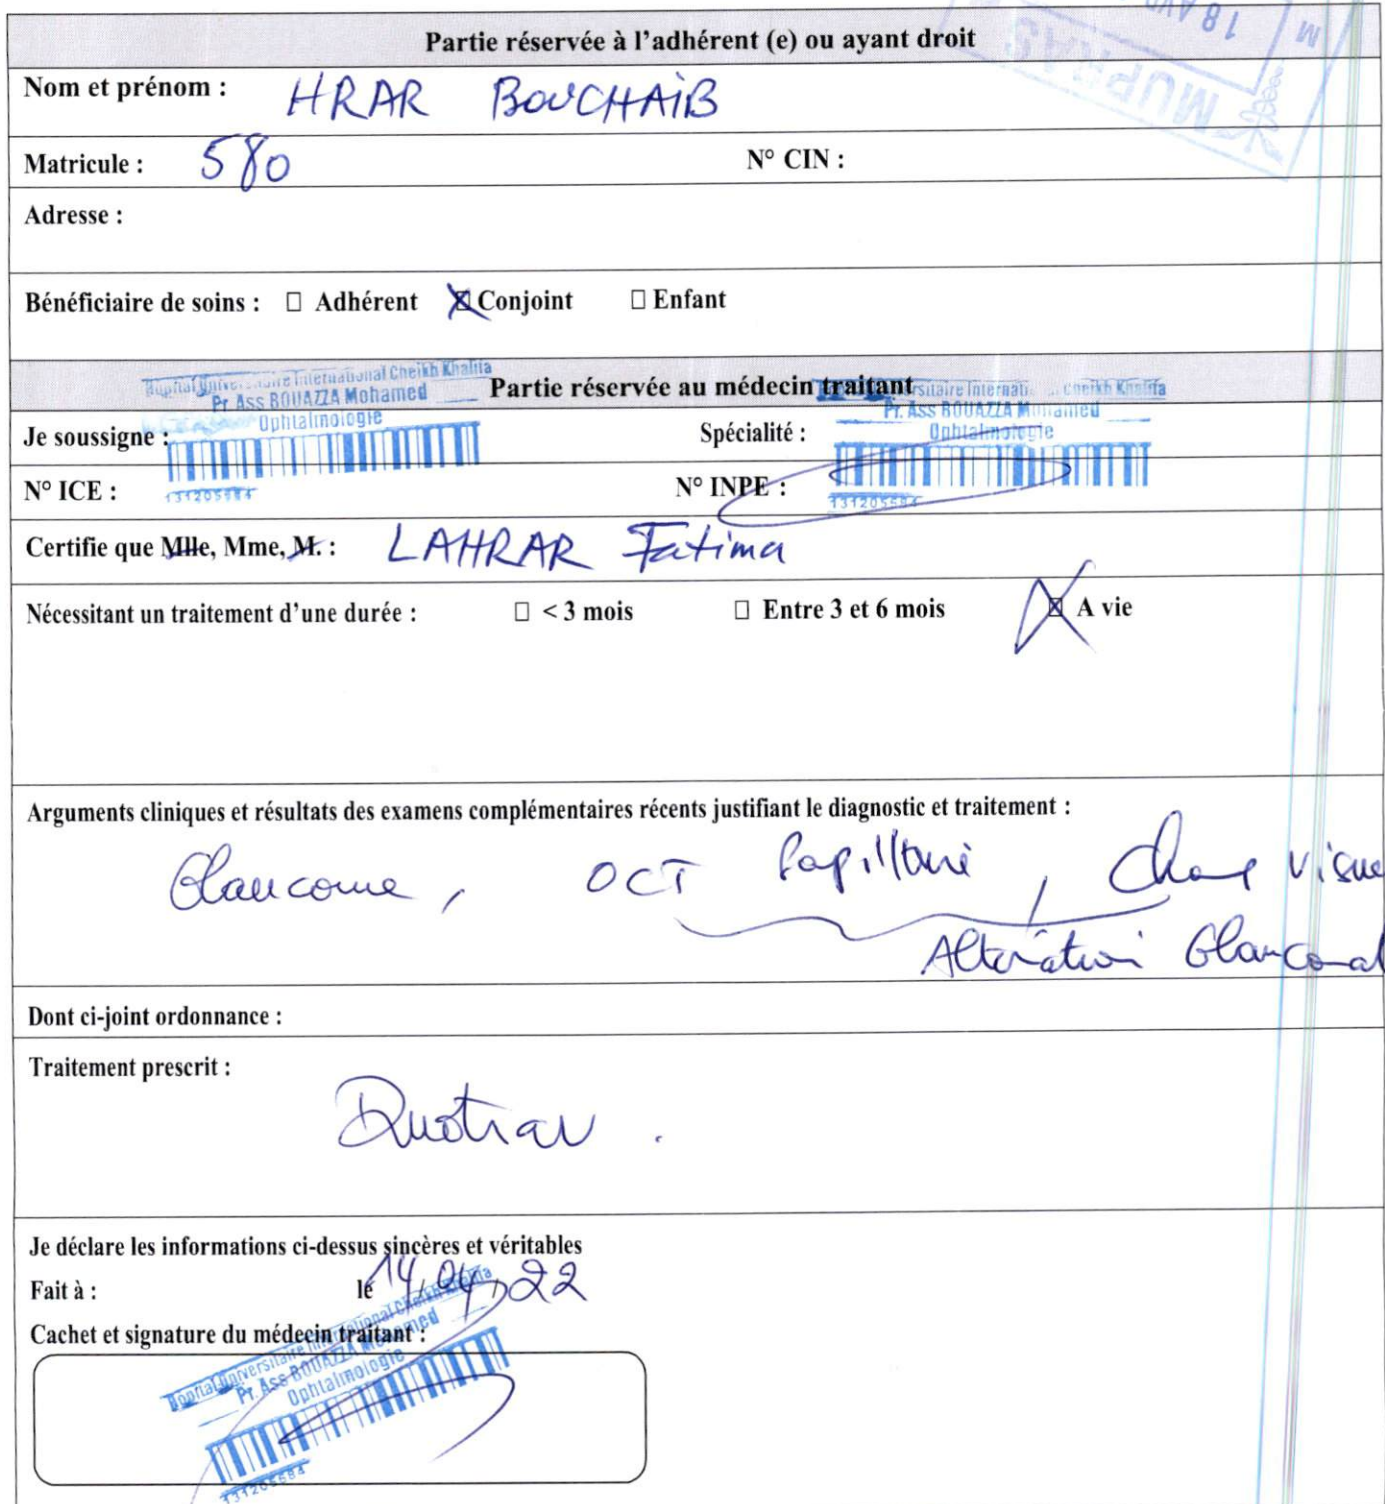 18 AVR
M
MUPRAS
Partie réservée à l'adhérent (e) ou ayant droit
Nom et prénom : HRAR BOUCHAIB
Matricule : 580 N° CIN :
Adresse :
Bénéficiaire de soins : □ Adhérent ☒ Conjoint □ Enfant
Hopital Universitaire International Cheikh Khalifa
Pr Ass BOUAZZA Mohamed
Ophtalmologie
Partie réservée au médecin traitant
Universitaire International Cheikh Khalifa
Pr. Ass BOUAZZA Mohamed
Ophtalmologie
Je soussigne : Spécialité :
N° ICE : 131205684 N° INPE : 131205684
Certifie que Mlle, Mme, M. : LAHRAR Fatima
Nécessitant un traitement d'une durée : □ < 3 mois □ Entre 3 et 6 mois ☒ A vie
Arguments cliniques et résultats des examens complémentaires récents justifiant le diagnostic et traitement :
Glaucome, OCT Papillaire, Champ visue
Altération Glaucomat
Dont ci-joint ordonnance :
Traitement prescrit :
Duotrav.
Je déclare les informations ci-dessus sincères et véritables
Fait à : le 14/04/22
Cachet et signature du médecin traitant :
Hopital Universitaire International Cheikh Khalifa
Pr. Ass BOUAZZA Mohamed
Ophtalmologie
131205684